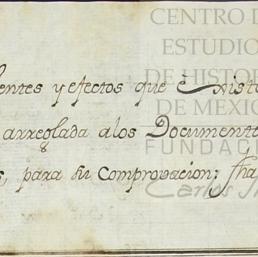 CENTRO D
ESTUDIO
DE HISTOR
DE MEXIC
FUNDAC
Carlos Sl
entes y efectos que existe
arreglada alos Documento
s, para su Comprovacion; fha